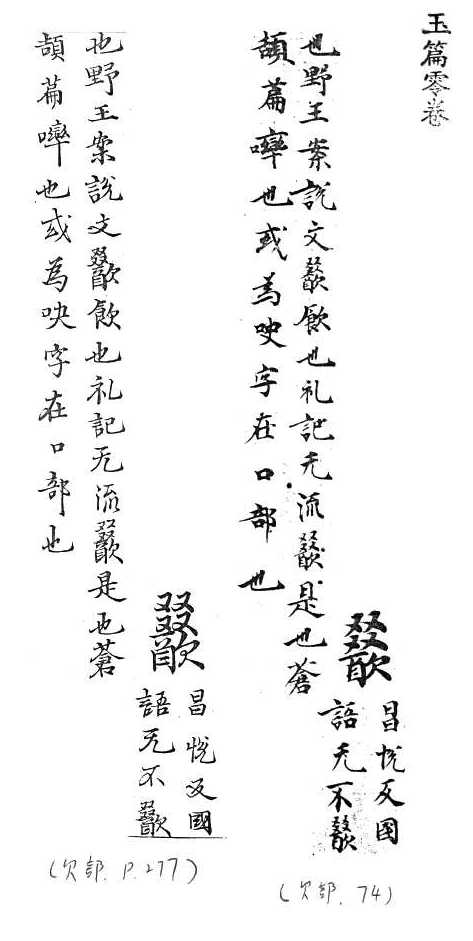 玉篇零卷
歠
昌悅反國
語无不歠
也野王案說文歠飲也礼記无流歠是也蒼
頡篇啐也或為吷字在口部也
(欠部. 74)
歠
昌悅反國
語无不歠
也野王案說文歠飲也礼記无流歠是也蒼
頡篇啐也或為吷字在口部也
(欠部. P.277)